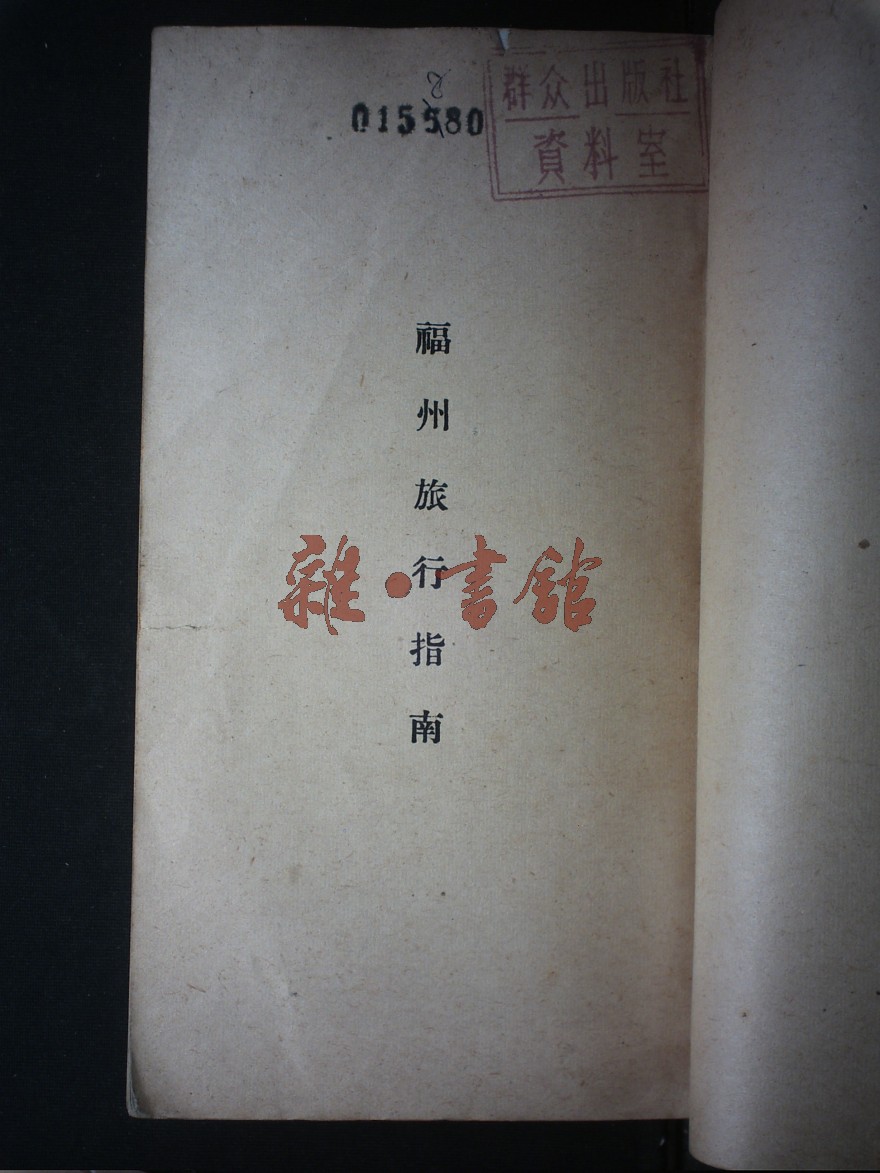 015580
8
群众出版社
資料室
福州旅行指南
雜·書館